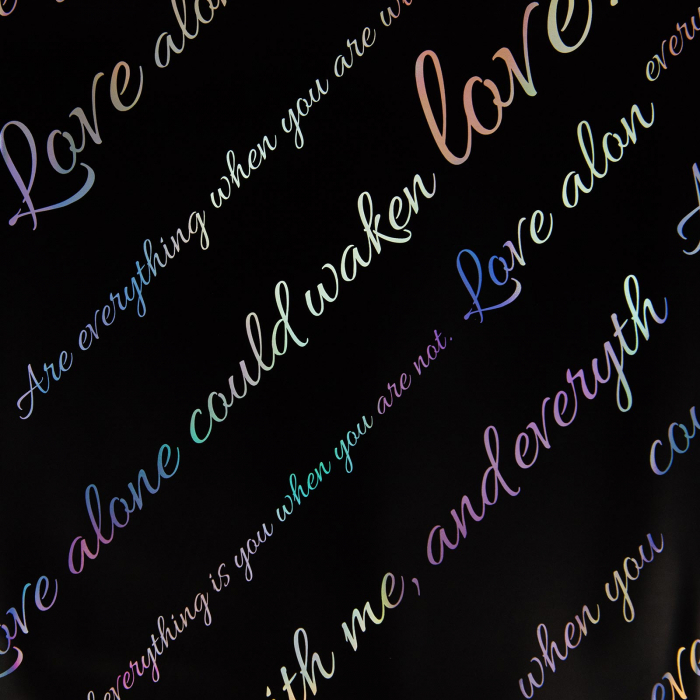 Love alon
Are everything when you are w
Love alone could waken love.
everything is you when you are not.
Love alon
every
with me, and everyth
when you
cou